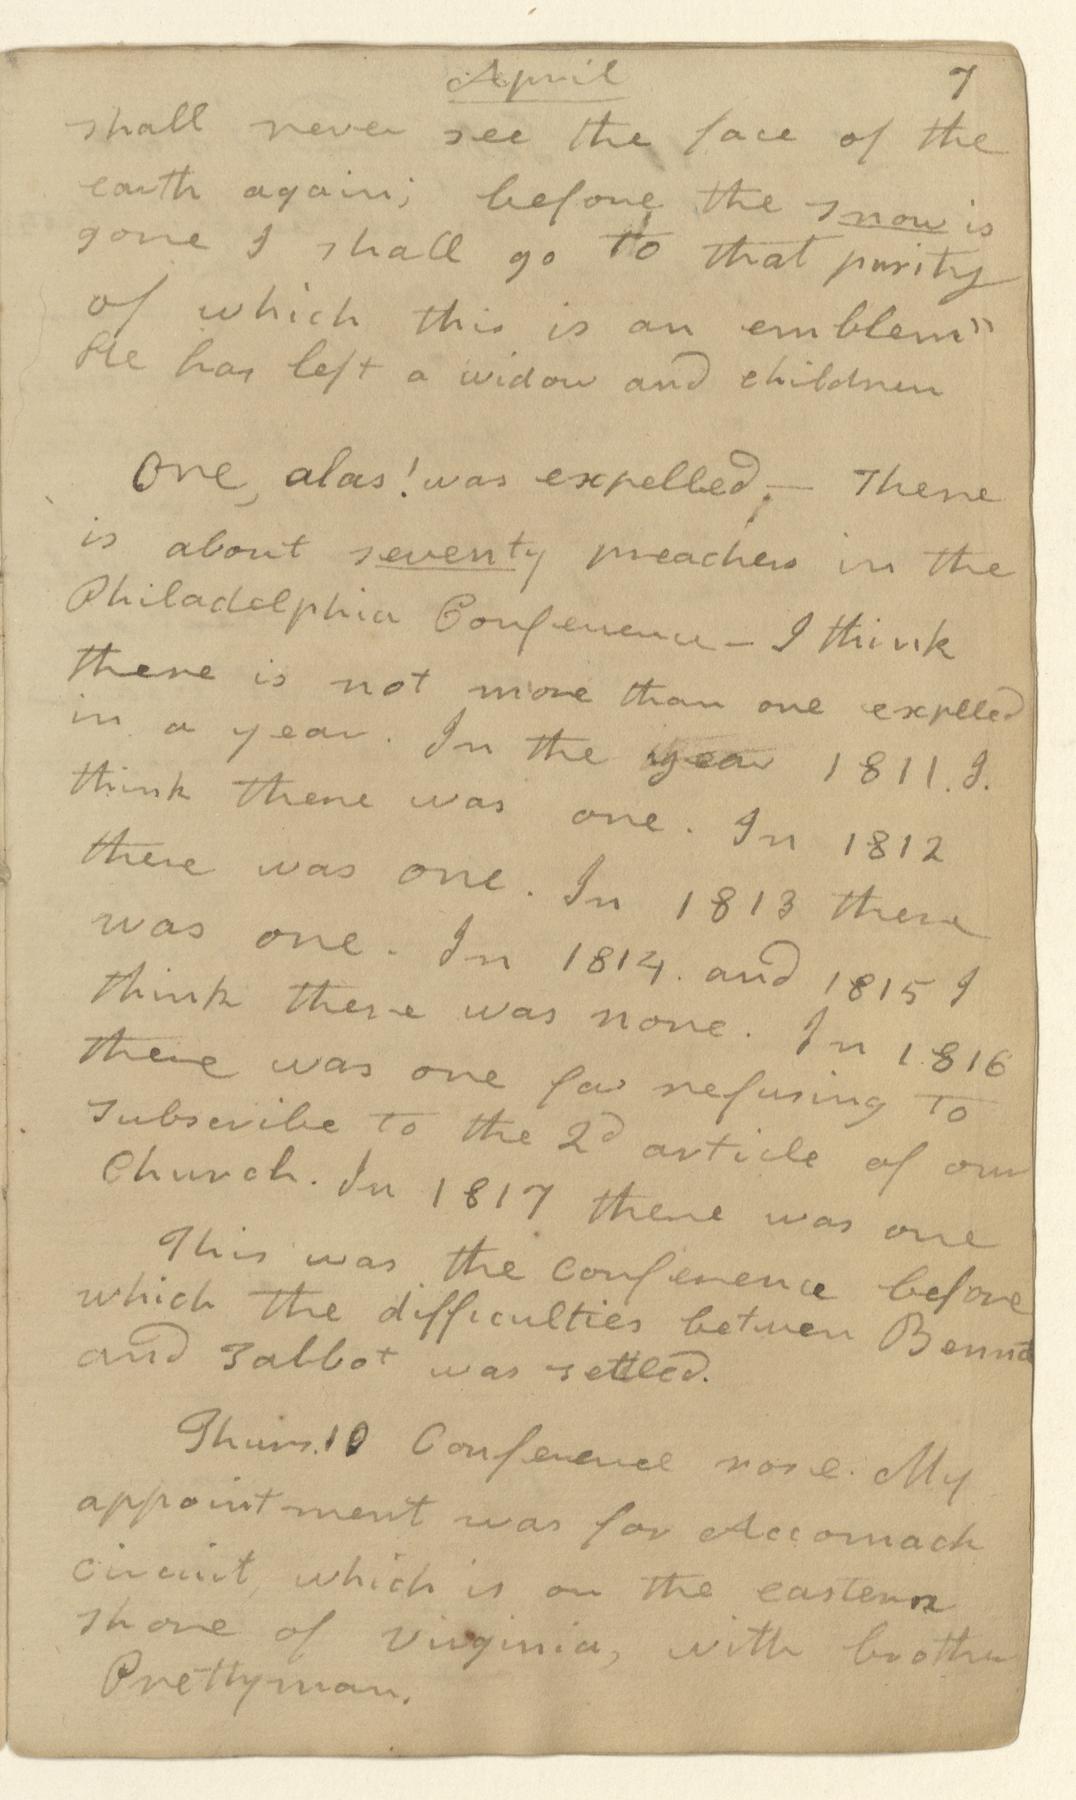 April 7
shall never see the face of the
earth again; before the snow is
gone I shall go to that purity
of which this is an emblem"
He has left a widow and children
One, alas! was expelled, — There
is about seventy preachers in the
Philadelphia Conference — I think
there is not more than one expelled
in a year. In the year 1811. I.
think there was one. In 1812
there was one. In 1813 there
was one. In 1814. and 1815 I
think there was none. In 1816
there was one for refusing to
subscribe to the 2d article of our
Church. In 1817 there was one
This was the conference before
which the difficulties between
and Talbot was settled.
Thurs. 10 Conference rose. My
appointment was for Accomack
circuit, which is on the eastern
shore of Virginia, with brother
Prettyman.